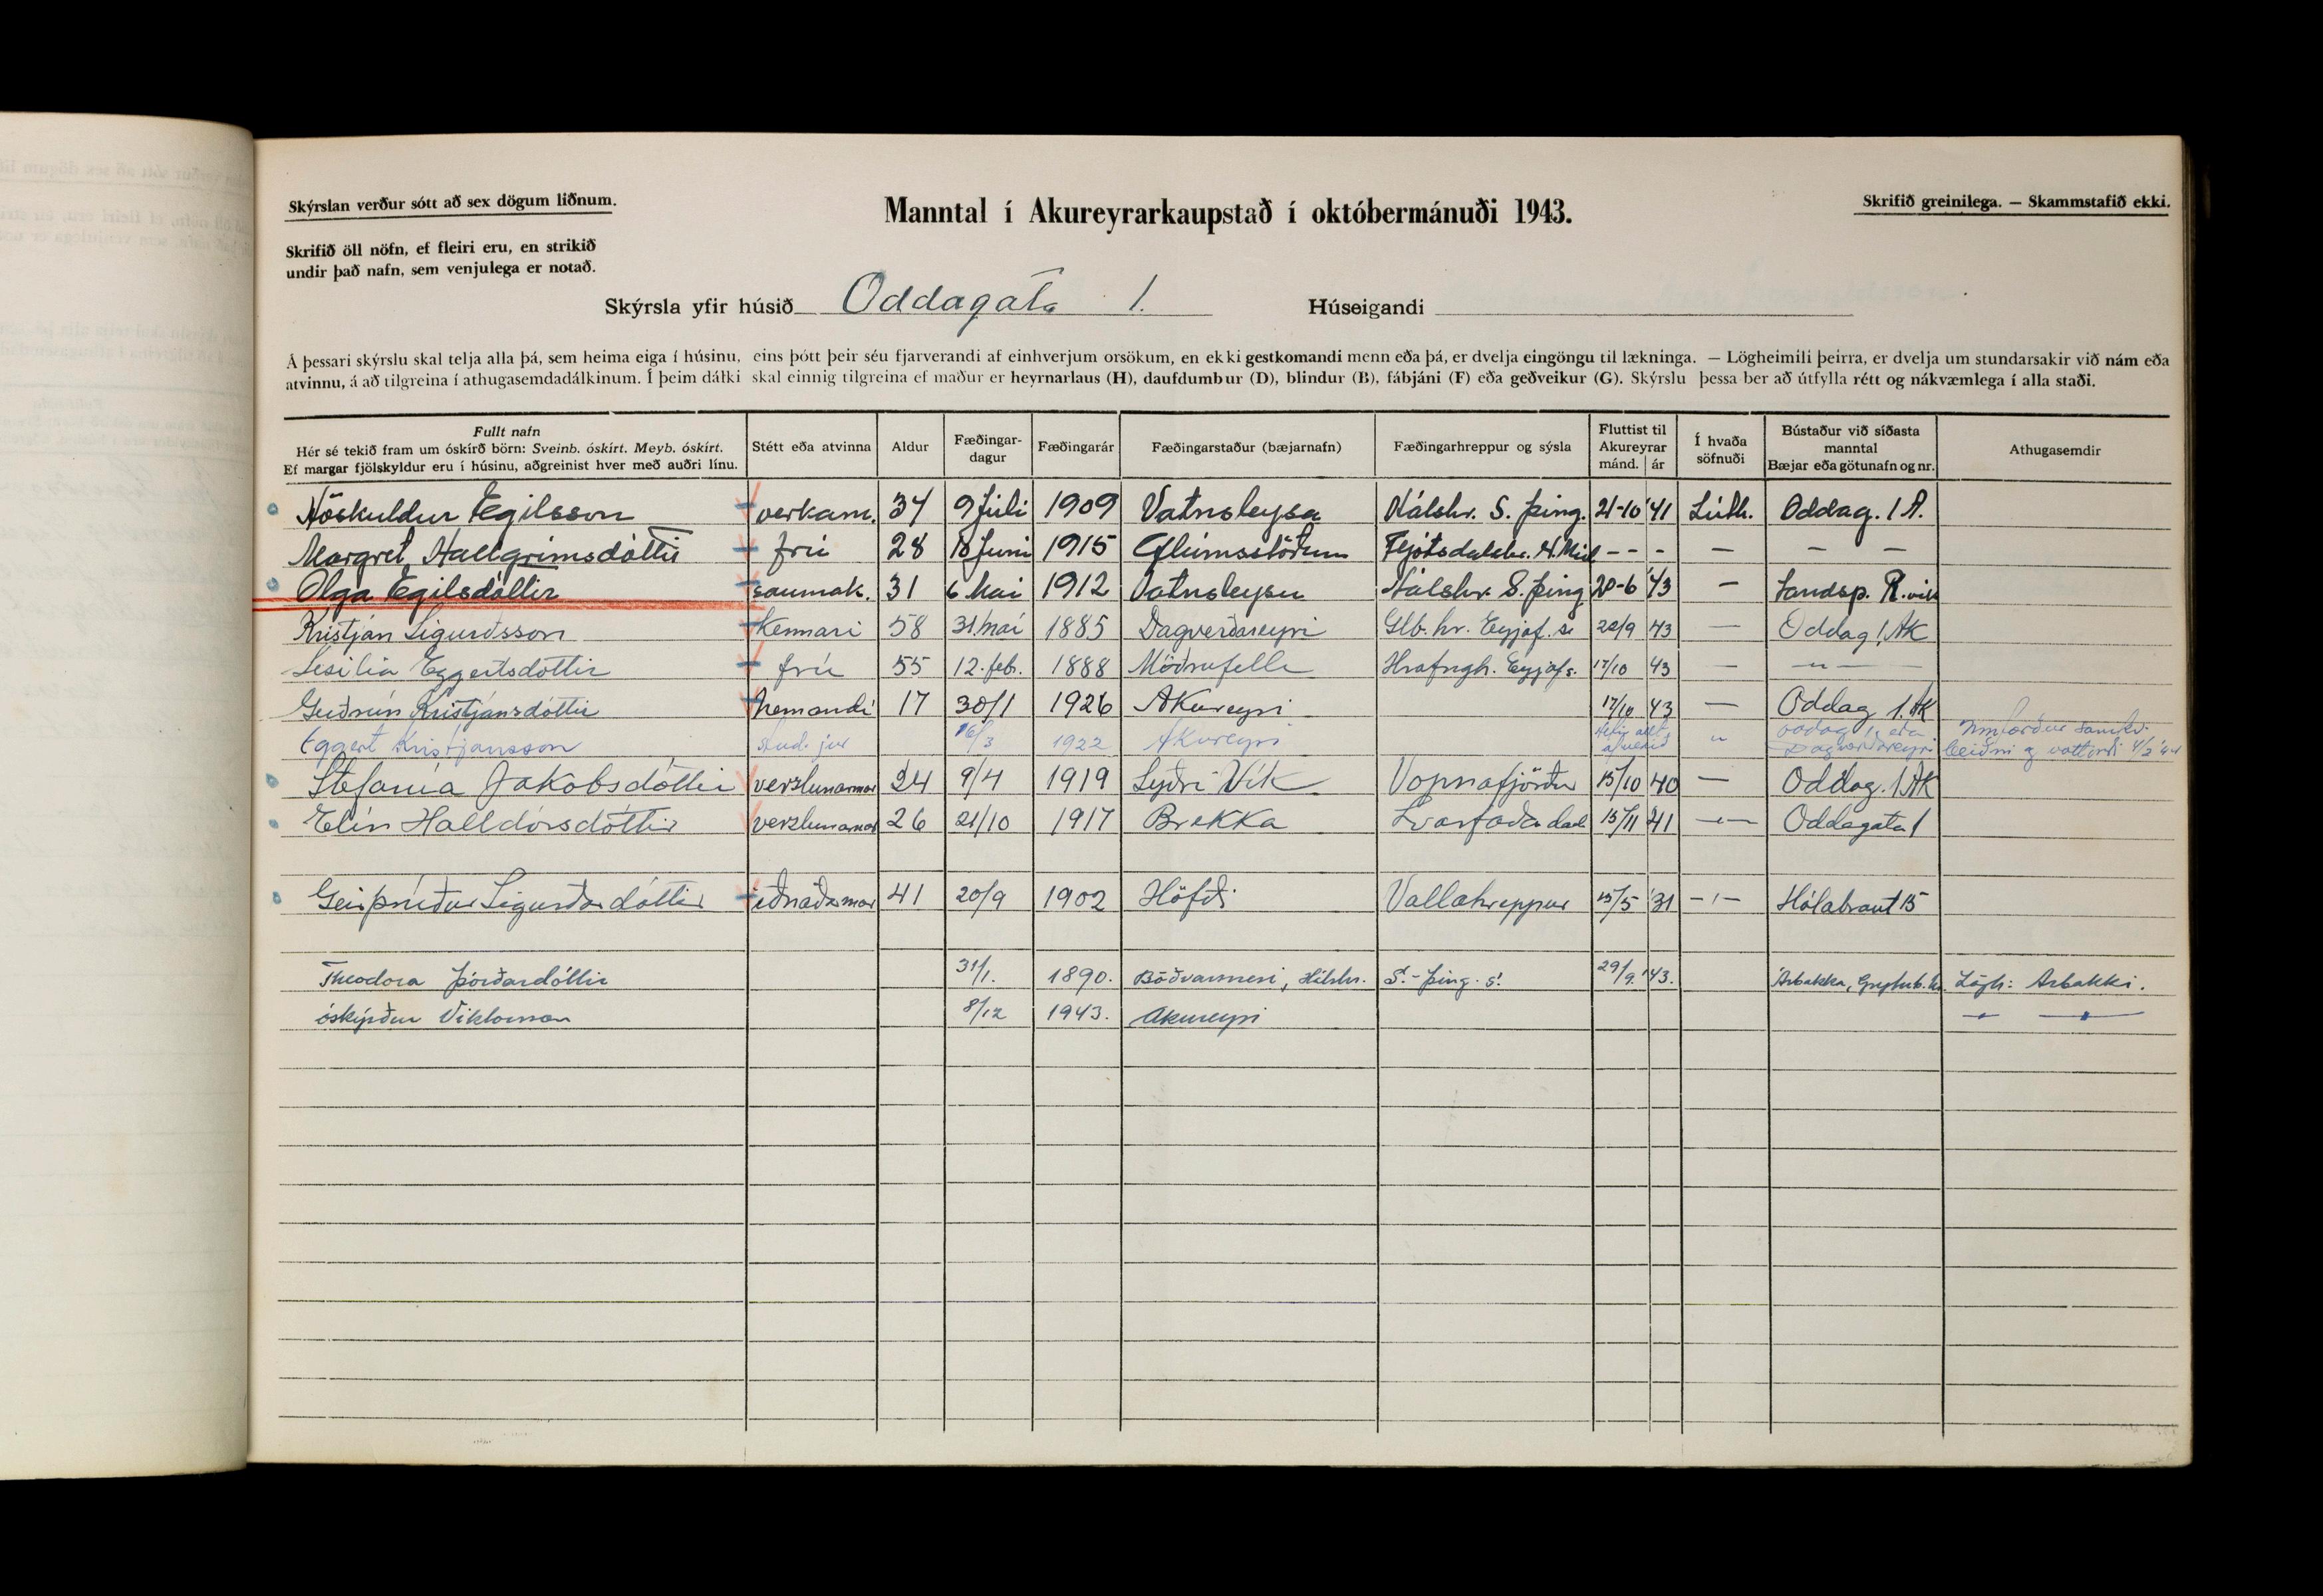 Skýrslan verður sótt að sex dögum liðnum.
Manntal í Akureyrarkaupstað í októbermánuði 1943.
Skrifið greinilega. — Skammstafið ekki.
Skrifið öll nöfn, ef fleiri eru, en strikið
undir það nafn, sem venjulega er notað.
Skýrsla yfir húsið Oddagata 1. Húseigandi
Á þessari skýrslu skal telja alla þá, sem heima eiga í húsinu, eins þótt þeir séu fjarverandi af einhverjum orsökum, en ekki gestkomandi menn eða þá, er dvelja eingöngu til lækninga. — Lögheimili þeirra, er dvelja um stundarsakir við nám eða
atvinnu, á að tilgreina í athugasemdadálkinum. Í þeim dálki skal einnig tilgreina ef maður er heyrnarlaus (H), daufdumbur (D), blindur (B), fábjáni (F) eða geðveikur (G). Skýrslu þessa ber að útfylla rétt og nákvæmlega í alla staði.
Fullt nafn
Hér sé tekið fram um óskírð börn: Sveinb. óskírt. Meyb. óskírt.
Ef margar fjölskyldur eru í húsinu, aðgreinist hver með auðri línu.
Stétt eða atvinna
Aldur
Fæðingar-
dagur
Fæðingarár
Fæðingarstaður (bæjarnafn)
Fæðingarhreppur og sýsla
Fluttist til
Akureyrar
mánd. ár
Í hvaða
söfnuði
Bústaður við síðasta
manntal
Bæjar eða götunafn og nr.
Athugasemdir
Höskuldur Egilsson verkam. 34 9 Júli 1909 Vatnsleysa Hálshr. S. þing. 21-10 '41 Lúth. Oddag. 1 A.
Margret Hallgrímsdóttir frú 28 18 Juni 1915 Glúmsstöðum Fljótsdalshr. N. Múl - - - — — — —
Olga Egilsdóttir saumak. 31 6 Mai 1912 Vatnsleysu Hálshr. S. þing 20-6 '43 — Landsp. R.vik
Kristján Sigurðsson Kennari 58 31 maí 1885 Dagverðareyri Glb. hr. Eyjaf. s. 22/9 43 — Oddag 1. AK
Sesilía Eggertsdóttir frú 55 12. feb. 1888 Möðrufelli Hrafngh. Eyjafs. 17/10 43 — — " —
Guðrún Kristjánsdóttir nemandi 17 30/1 1926 AKureyri 17/10 43 — Oddag 1. AK
Eggert Kristjansson stud. jur 16/3 1922 Akureyri " Oddag 1, eða
Dagverðareyri
Stefanía Jakobsdóttir verzlunarmær 24 9/4 1919 Syðri-Vík Vopnafjörður 15/10 40 — Oddag. 1 AK
Elín Halldórsdóttir verzlunarmær 26 21/10 1917 BreKKa Svarfaðardal 15/11 41 — " — Oddagata 1
Geirþrúður Sigurðardóttir iðnaðarmær 41 20/9 1902 Höfði Vallahreppur 15/5 '31 — " — Hólabraut 15
Theodora Þórðardóttir 31/1. 1890. Böðvarsnesi, Hálshr. S.-þing. s. 29/9. '43. Árbakka, Grýtub.hr. Lögh: Árbakki.
óskýrður Viktorsson 8/12 1943. Akureyri — " — " —